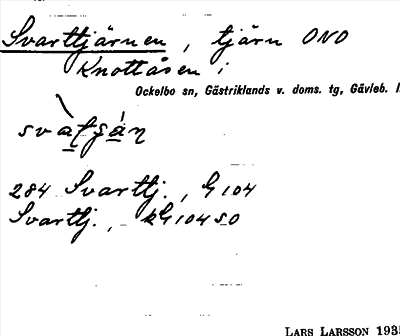 Svarttjärnen, tjärn ONO
Knottåsen i
Ockelbo sn, Gästriklands v. doms. tg, Gävleb. l
284 Svarttj., G 104
Svarttj., kG 104 SO
LARS LARSSON 1935